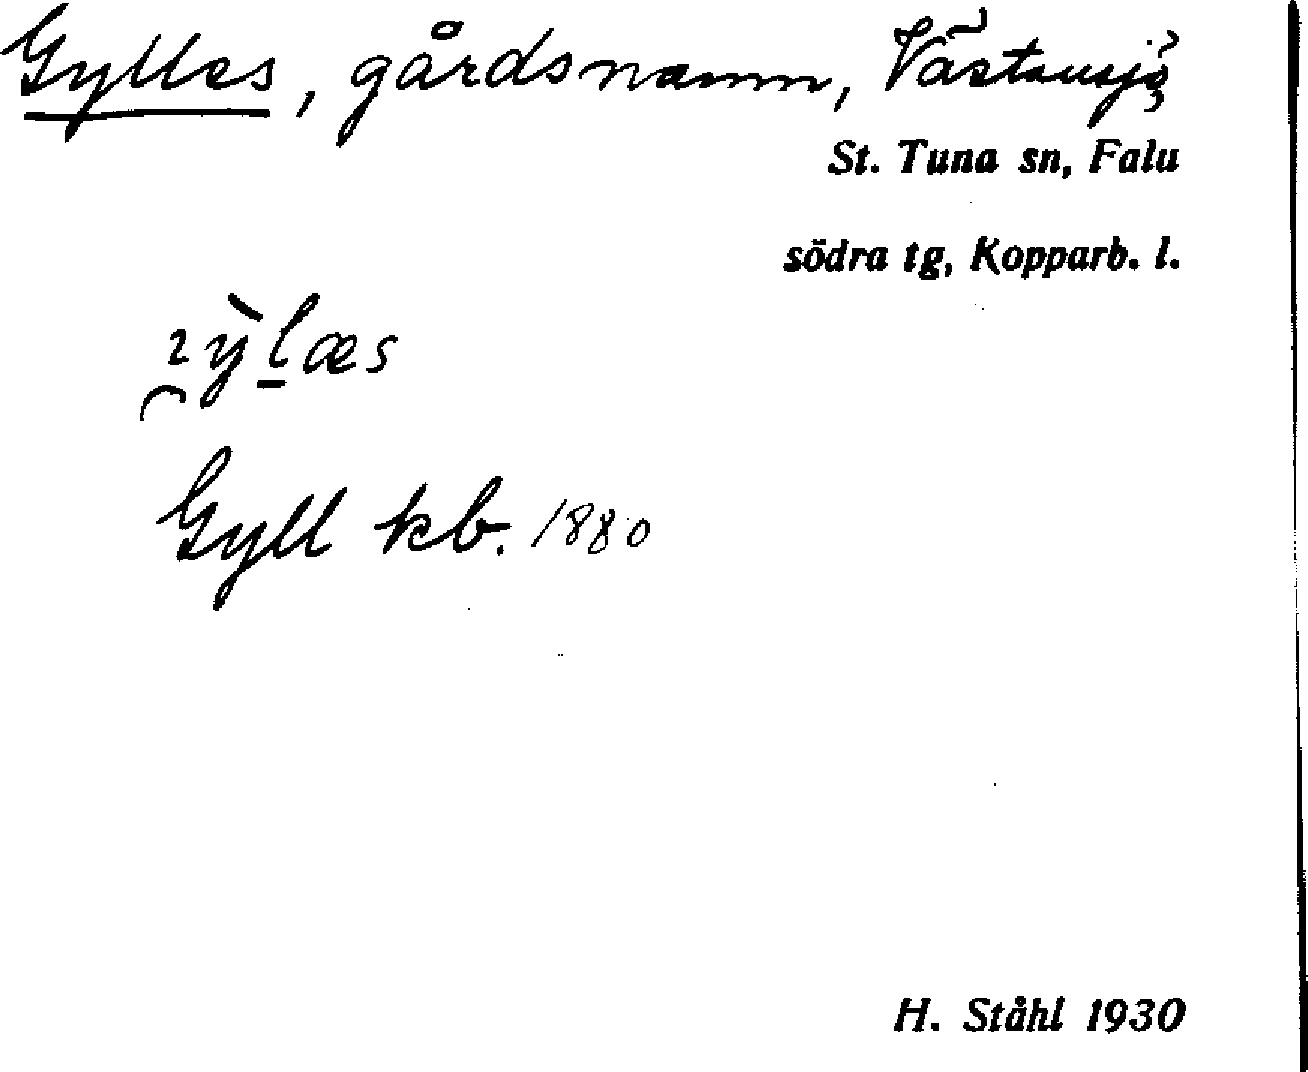 Gylles, gårdsnamn, Västansjö,
St. Tuna sn, Falu
södra tg, Kopparb. l.
Gyll kb. 1880
H. Ståhl 1930